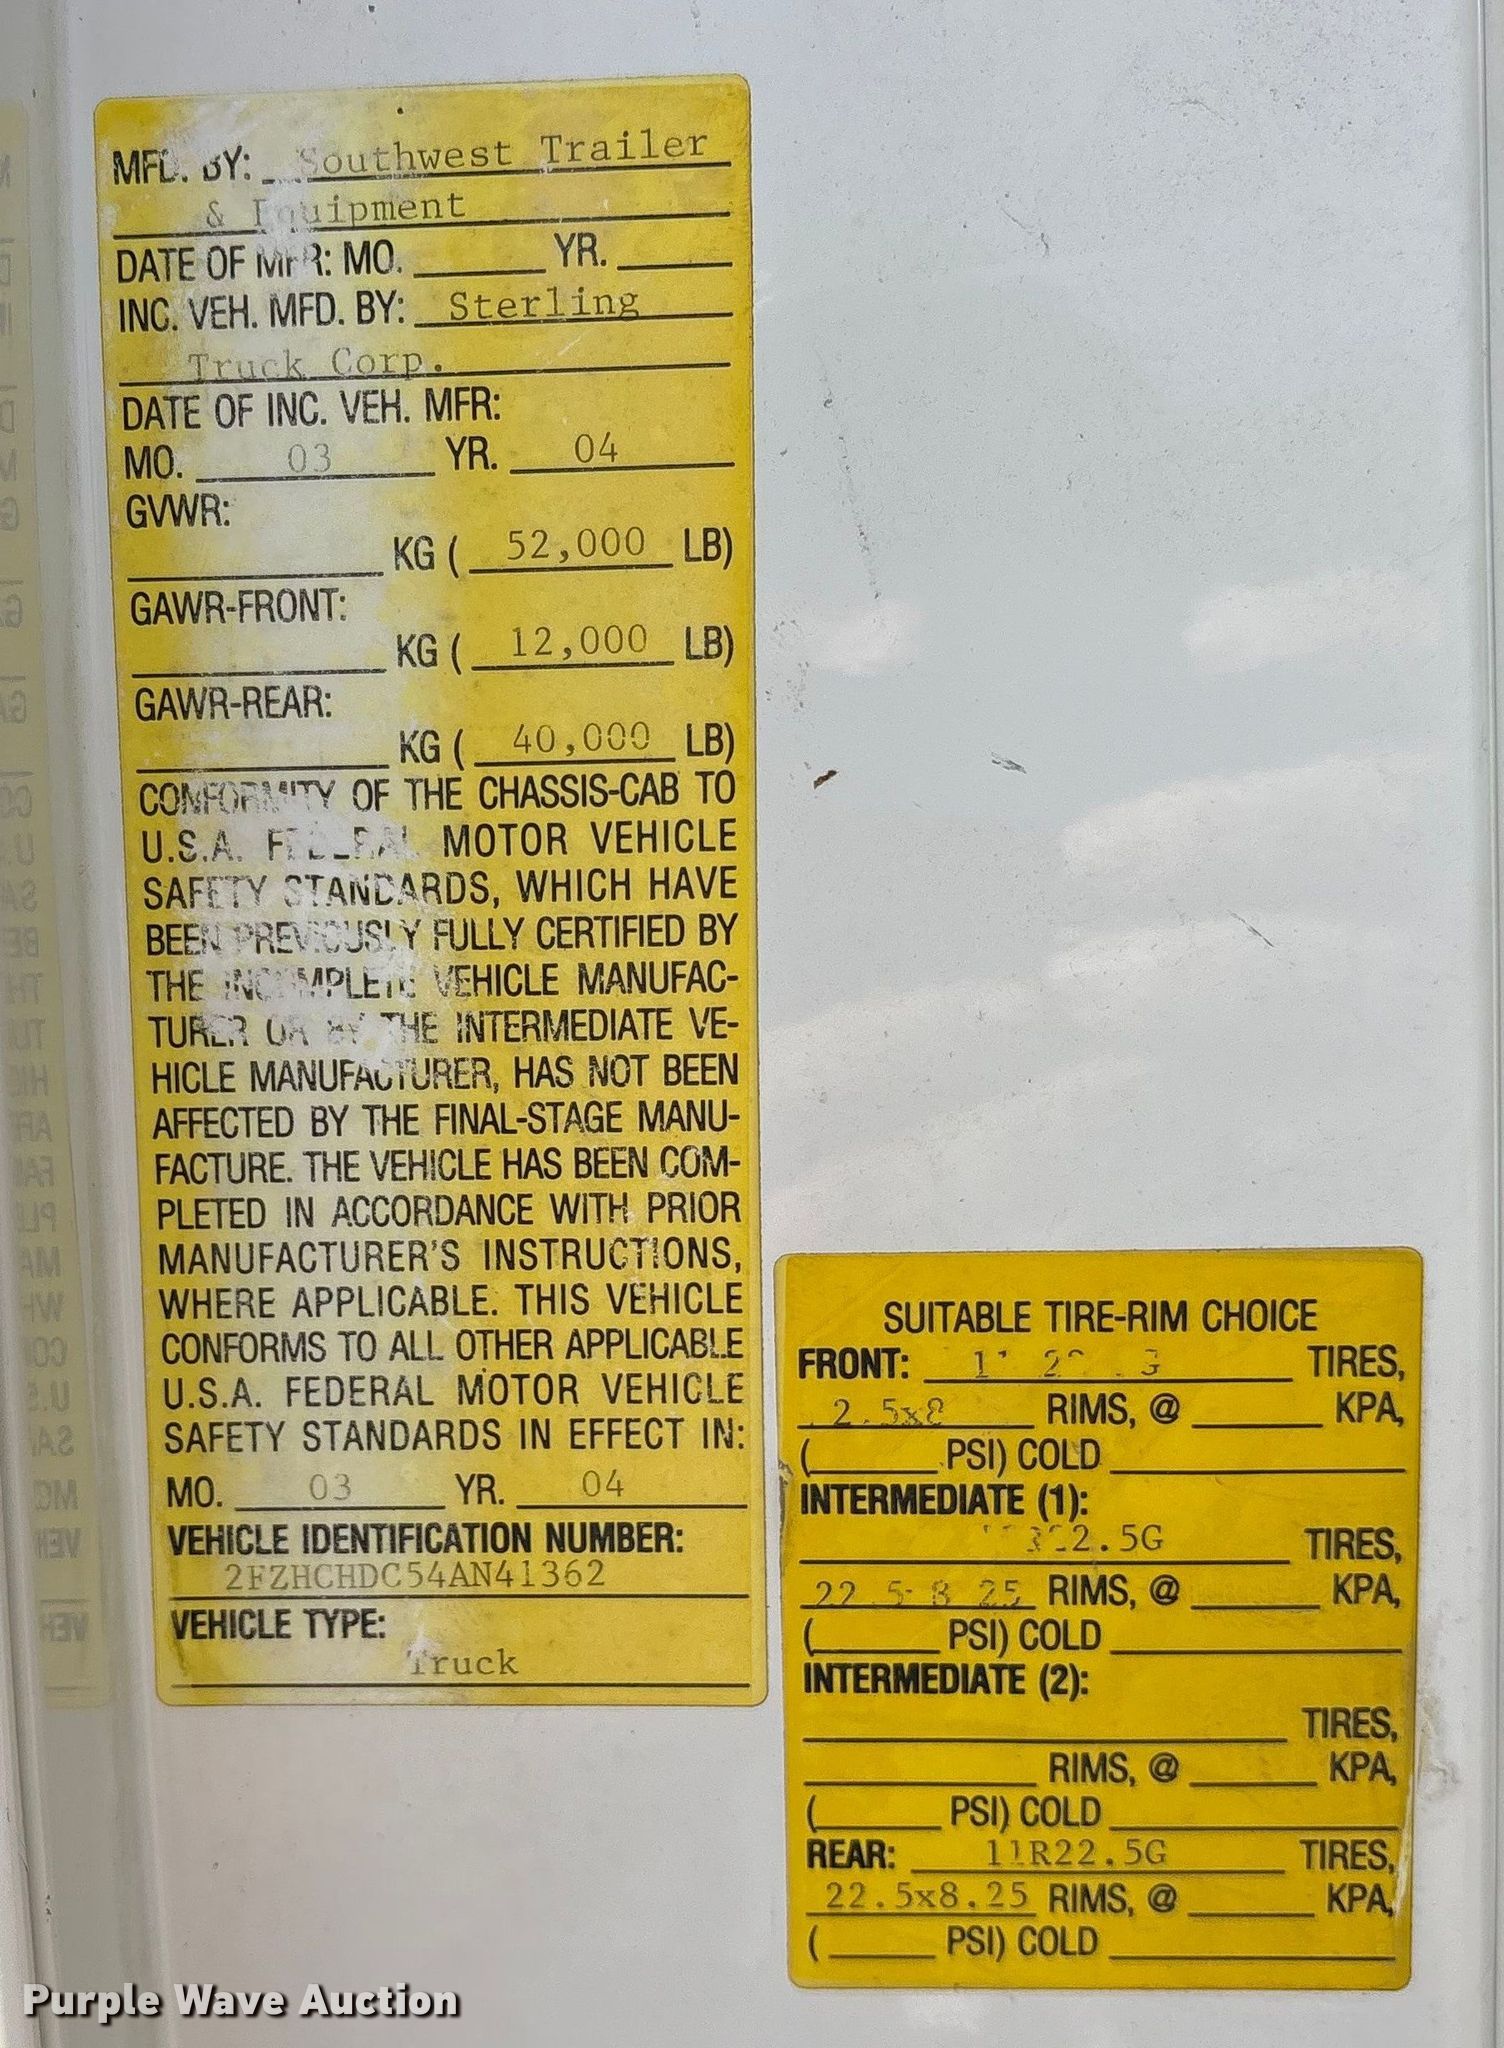 MFD. BY: Southwest Trailer
& Equipment
DATE OF MFR: MO. ______ YR. ______
INC. VEH. MFD. BY: Sterling
Truck Corp.
DATE OF INC. VEH. MFR:
MO. 03 YR. 04
GVWR:
______ KG ( 52,000 LB)
GAWR-FRONT:
______ KG ( 12,000 LB)
GAWR-REAR:
______ KG ( 40,000 LB)
CONFORMITY OF THE CHASSIS-CAB TO
U.S.A. FEDERAL MOTOR VEHICLE
SAFETY STANDARDS, WHICH HAVE
BEEN PREVIOUSLY FULLY CERTIFIED BY
THE INCOMPLETE VEHICLE MANUFAC-
TURER OR BY THE INTERMEDIATE VE-
HICLE MANUFACTURER, HAS NOT BEEN
AFFECTED BY THE FINAL-STAGE MANU-
FACTURE. THE VEHICLE HAS BEEN COM-
PLETED IN ACCORDANCE WITH PRIOR
MANUFACTURER'S INSTRUCTIONS,
WHERE APPLICABLE. THIS VEHICLE
CONFORMS TO ALL OTHER APPLICABLE
U.S.A. FEDERAL MOTOR VEHICLE
SAFETY STANDARDS IN EFFECT IN:
MO. 03 YR. 04
VEHICLE IDENTIFICATION NUMBER:
2FZHCHDC54AN41362
VEHICLE TYPE:
Truck
SUITABLE TIRE-RIM CHOICE
FRONT: TIRES,
RIMS, @ ______ KPA,
(______ PSI) COLD ______
INTERMEDIATE (1):
TIRES,
RIMS, @ ______ KPA,
(______ PSI) COLD ______
INTERMEDIATE (2):
______ TIRES,
______ RIMS, @ ______ KPA,
(______ PSI) COLD ______
REAR: 11R22.5G TIRES,
22.5x8.25 RIMS, @ ______ KPA,
(______ PSI) COLD ______
Purple Wave Auction